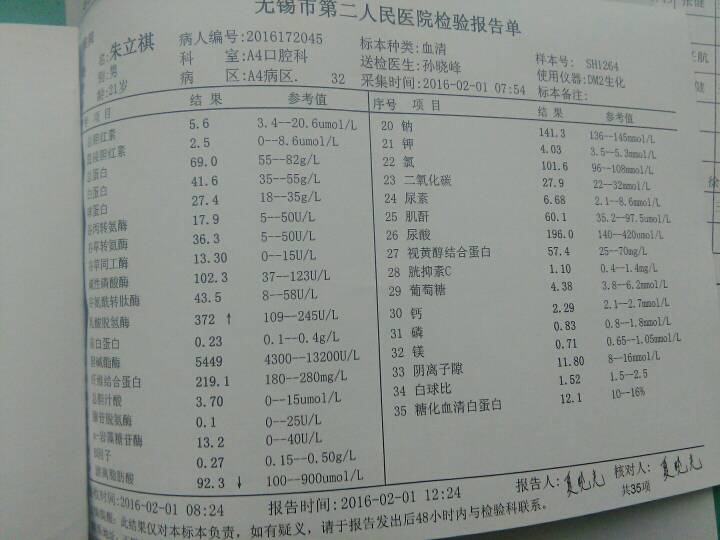 无锡市第二人民医院检验报告单
名:朱立祺 病人编号:2016172045 标本种类:血清 样本号: SH1264
别:男 科 室:A4口腔科 送检医生:孙晓峰 使用仪器:DM2生化
龄:21岁 病 区:A4病区. 32 采集时间:2016-02-01 07:54 标本备注:
号 项 目 结 果 参考值 序号 项 目 结 果 参考值
总胆红素 5.6 3.4--20.6umol/L 20 钠 141.3 136--145mmol/L
直接胆红素 2.5 0--8.6umol/L 21 钾 4.03 3.5--5.3mmol/L
总蛋白 69.0 55--82g/L 22 氯 101.6 96--108mmol/L
白蛋白 41.6 35--55g/L 23 二氧化碳 27.9 22--32mmol/L
球蛋白 27.4 18--35g/L 24 尿素 6.68 2.1--8.6mmol/L
谷丙转氨酶 17.9 5--50U/L 25 肌酐 60.1 35.2--97.5umol/L
谷草转氨酶 36.3 5--50U/L 26 尿酸 196.0 140--420umol/L
谷草同工酶 13.30 0--15U/L 27 视黄醇结合蛋白 57.4 25--70mg/L
碱性磷酸酶 102.3 37--123U/L 28 胱抑素C 1.10 0.4--1.4mg/L
谷氨酰转肽酶 43.5 8--58U/L 29 葡萄糖 4.38 3.8--6.2mmol/L
乳酸脱氢酶 372 ↑ 109--245U/L 30 钙 2.29 2.1--2.7mmol/L
前白蛋白 0.23 0.1--0.4g/L 31 磷 0.83 0.8--1.8mmol/L
胆碱酯酶 5449 4300--13200U/L 32 镁 0.71 0.65--1.05mmol/L
纤维结合蛋白 219.1 180--280mg/L 33 阴离子隙 11.80 8--16mmol/L
总胆汁酸 3.70 0--15umol/L 34 白球比 1.52 1.5--2.5
腺苷脱氨酶 0.1 0--25U/L 35 糖化血清白蛋白 12.1 10--16%
a-岩藻糖苷酶 13.2 0--40U/L
B因子 0.27 0.15--0.50g/L
游离脂肪酸 92.3 ↓ 100--900umol/L
时间:2016-02-01 08:24 报告时间:2016-02-01 12:24 报告人: 核对人:
提醒: 此结果仅对本标本负责, 如有疑义, 请于报告发出后48小时内与检验科联系. 共35项